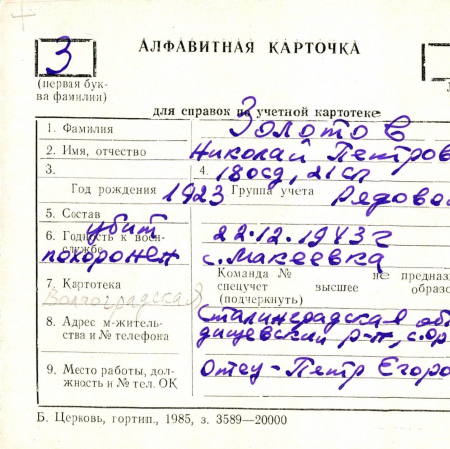 З
АЛФАВИТНАЯ КАРТОЧКА
(первая бук-
ва фамилии)
для справок по учетной картотеке
1. Фамилия Золотов
2. Имя, отчество Николай Петров
3. 4. 180сд, 21сп
Год рождения 1923 Группа учета Рядово
5. Состав убит
6. Годность к воен- 22.12.1943г
службе похоронен с. Макеевка
Команда № не предназ
7. Картотека спецучет высшее образо
Волгоградская (подчеркнуть)
8. Адрес м-житель- Сталинградская об
ства и № телефона дищевский р-н, с. Ор
9. Место работы, дол- Отец-Петр Егоро
жность и № тел. ОК
Б. Церковь, гортип., 1985, з. 3589—20000